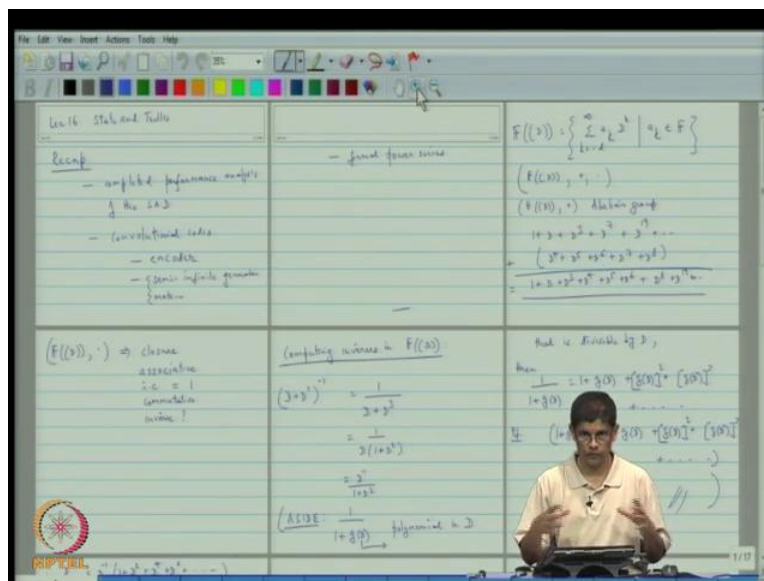 File Edit View Insert Actions Tools Help
Lec 16 State and Trellis
Recap
- completed performance analysis
of the SAD
- convolutional codes
- encoder
- semi-infinite generator
- formal power series
F((D)) = { ∑ a_k D^k | a_k ∈ F }
(F((D)), +, ·)
(F((D)), +) Abelian group
1 + D + D^3 + D^7 + D^19 + ...
+ (D^4 + D^5 + D^6 + D^7 + D^8)
= 1 + D + D^3 + D^4 + D^5 + D^6 + D^8 + D^19 + ...
(F((D)), ·) ⇒ closure
associative
i.e = 1
commutative
inverse?
Computing inverses in F((D)):
(D+D^3)^-1 = 1/(D+D^3)
= 1/(D(1+D^2))
= D^-1/(1+D^2)
(ASIDE: 1/(1+g(D)) polynomial in D
that is divisible by D,
then
1/(1+g(D)) = 1 + g(D) + [g(D)]^2 + [g(D)]^3
+ .....
g(D) + [g(D)]^2 + [g(D)]^3
+ ..... )
NPTEL
1/17